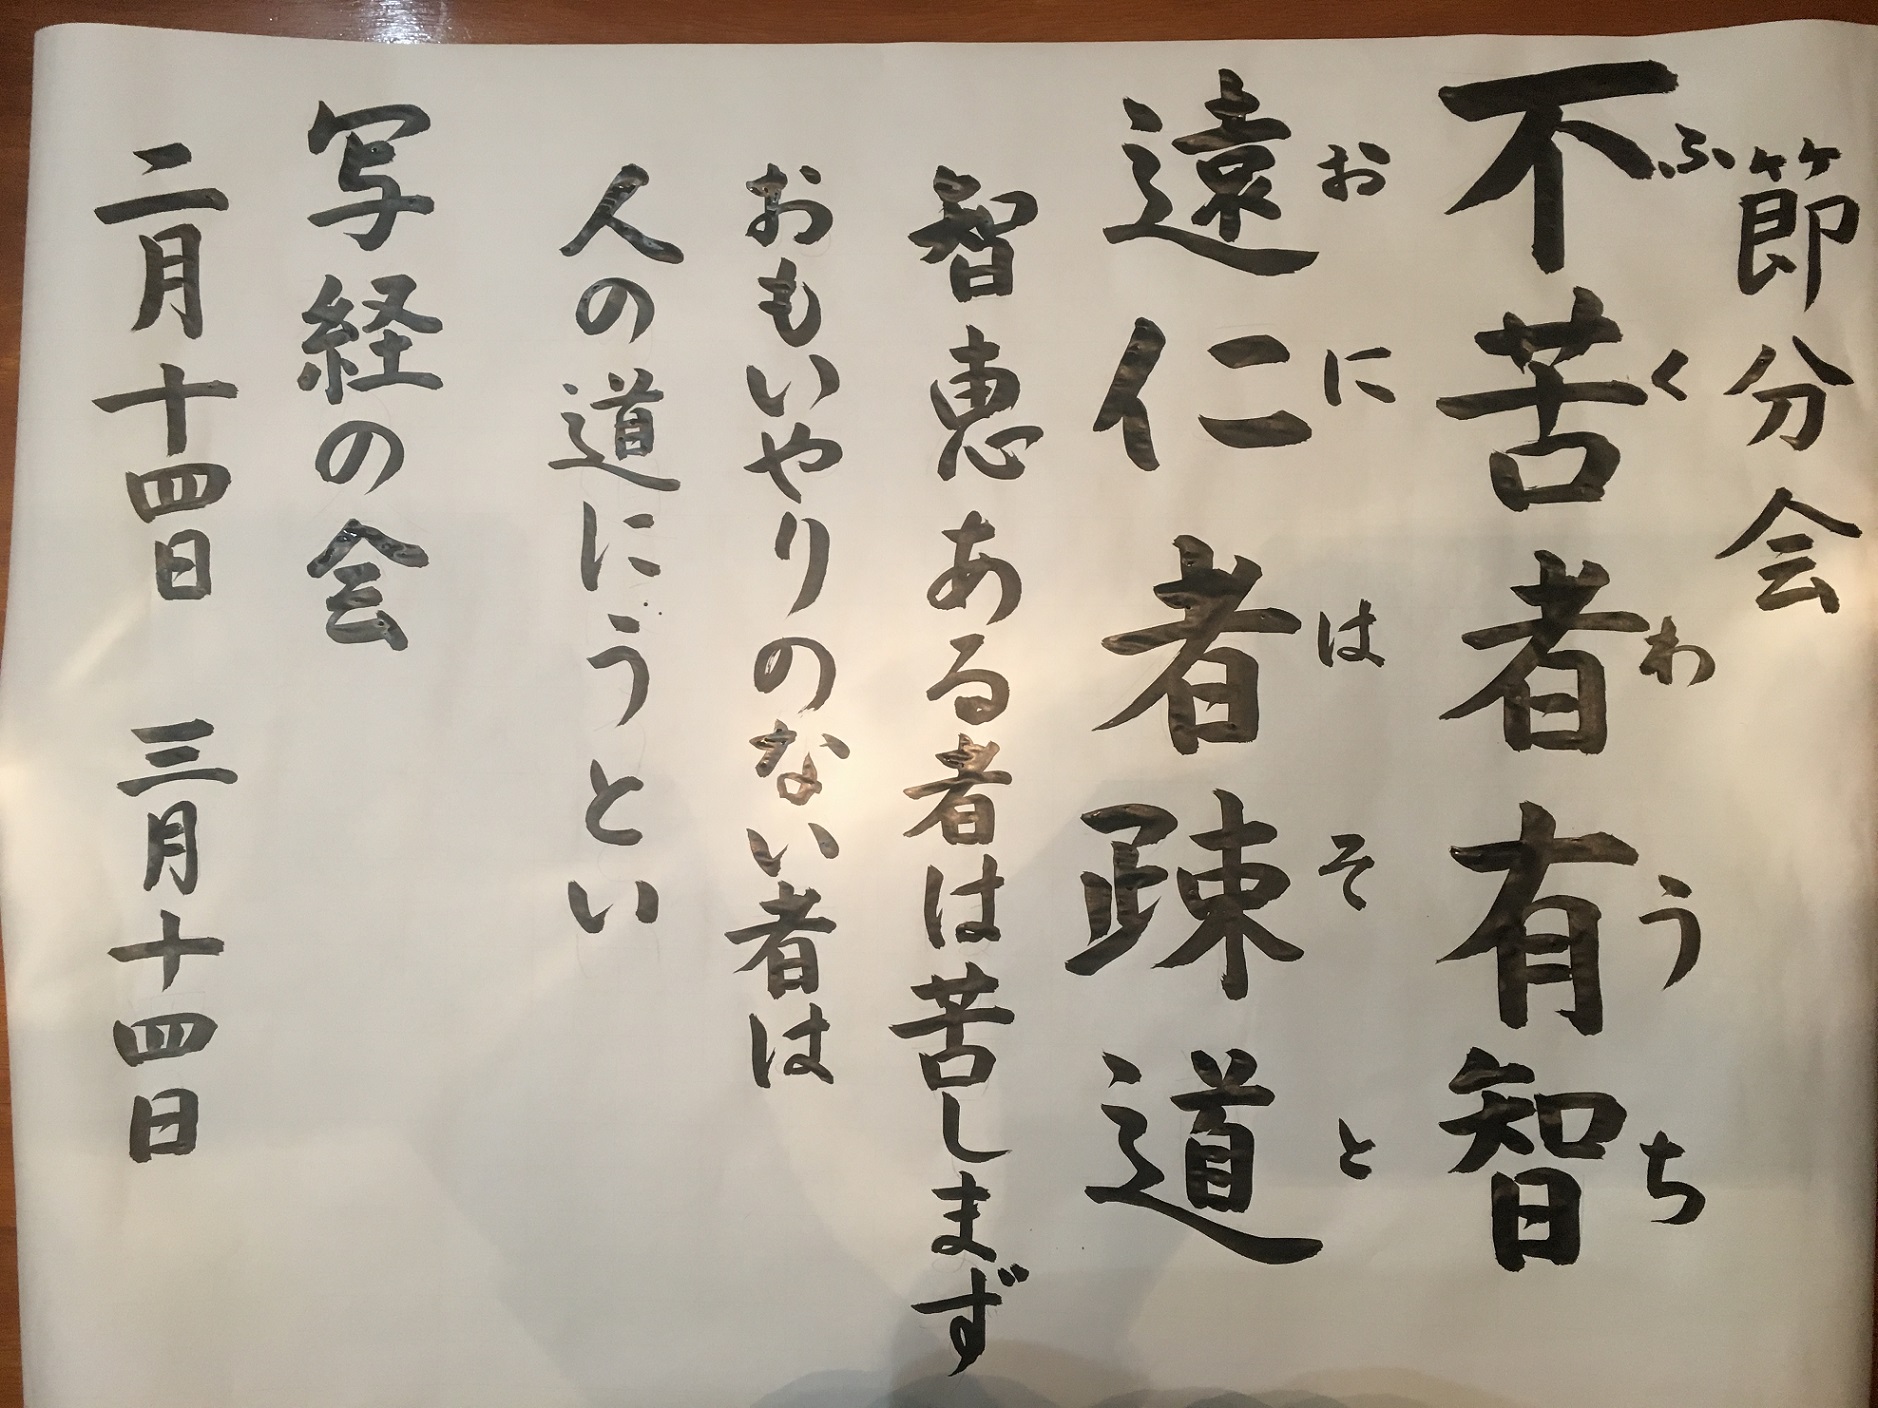 節分会
不苦者有智
ふくわうち
遠仁者疎道
おにはそと
智恵ある者は苦しまず
おもいやりのない者は
人の道にうとい
写経の会
二月十四日 三月十四日